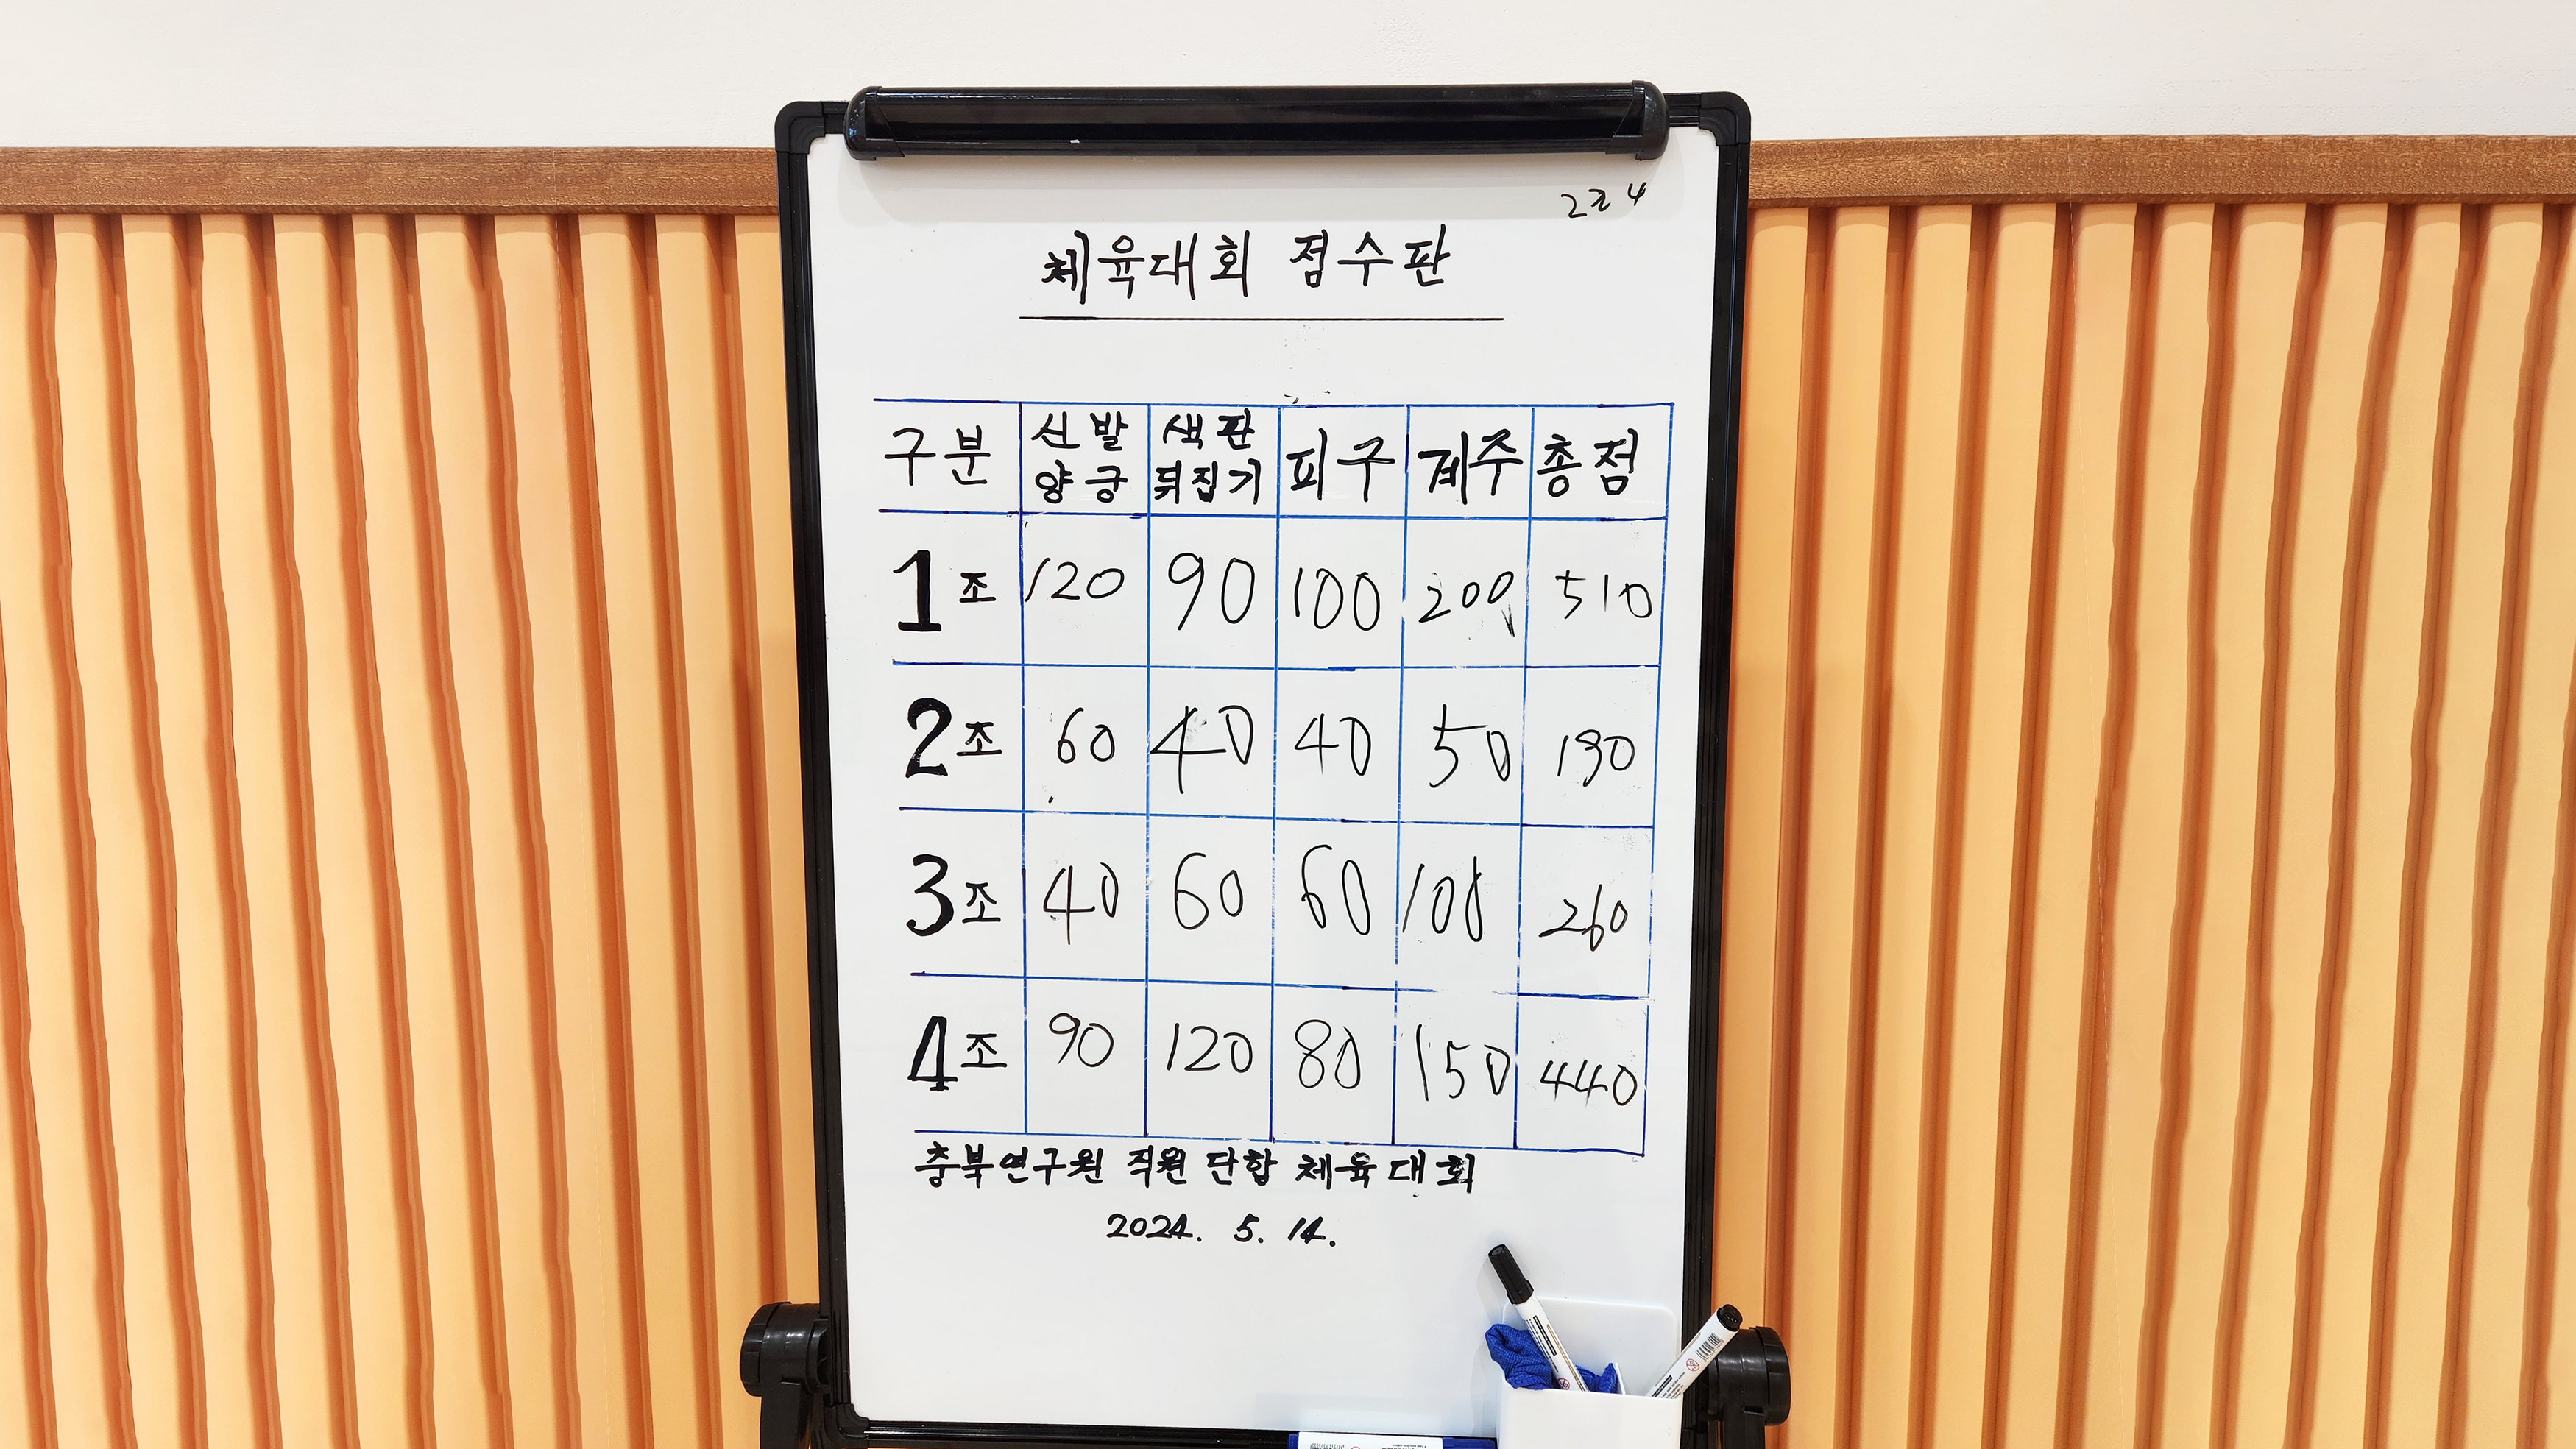 2조 4
체육대회 점수판
구분 신발 양궁 색판 뒤집기 피구 계주 총점
1조 120 90 100 200 510
2조 60 40 40 50 190
3조 40 60 60 100 260
4조 90 120 80 150 440
충북연구원 직원 단합 체육대회
2024. 5. 14.